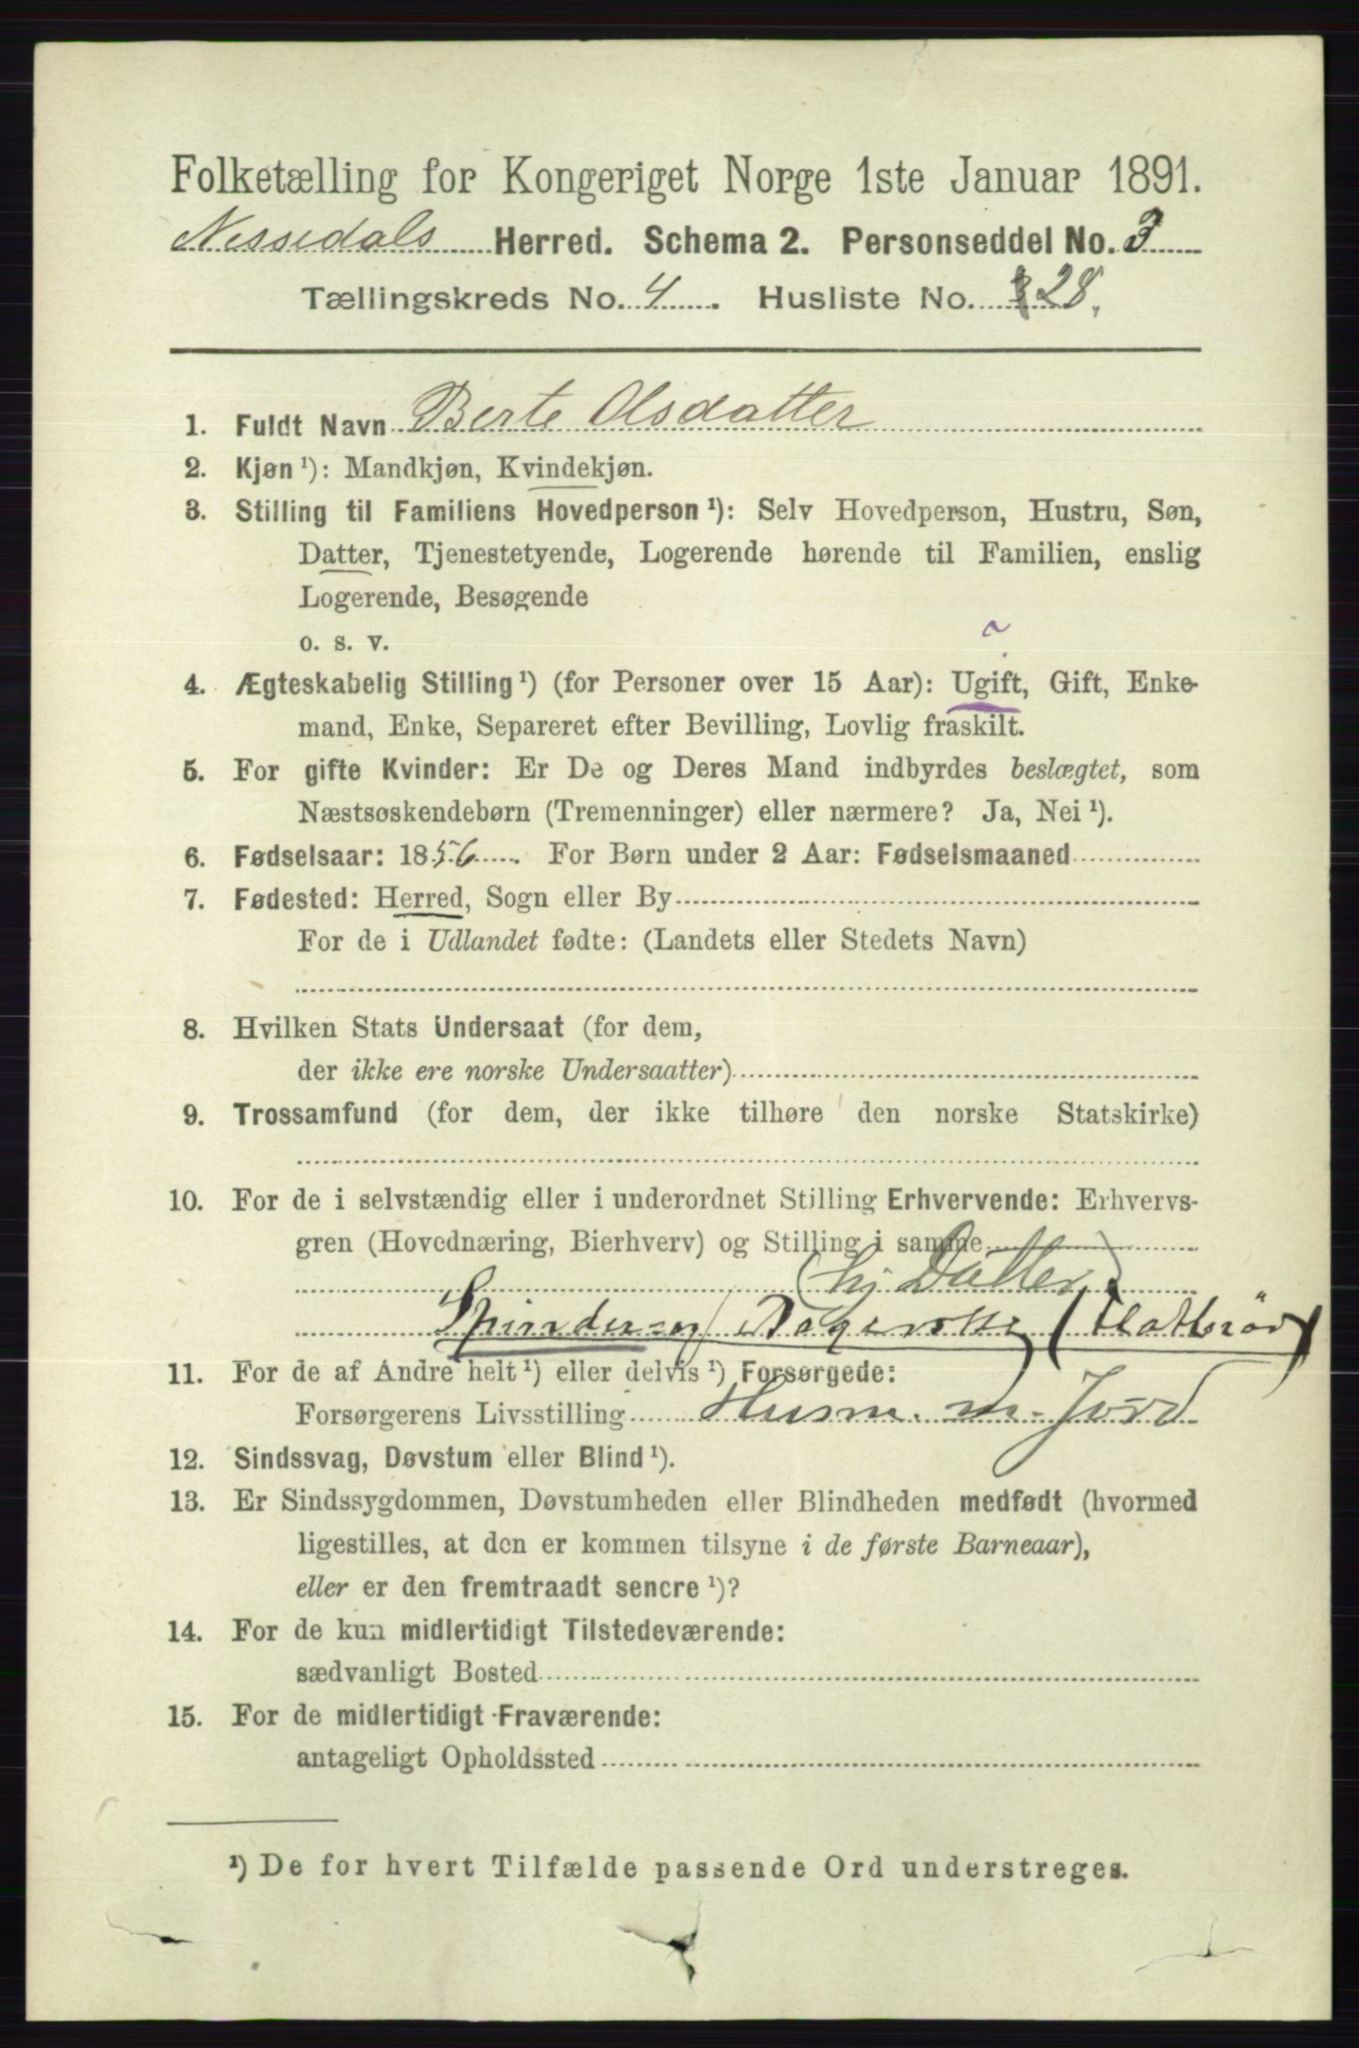 Folketælling for Kongeriget Norge 1ste Januar 1891.
Nissedals Herred. Schema 2. Personseddel No. 3
Tællingskreds No. 4. Husliste No. 28.
1. Fuldt Navn Berte Olsdatter
2. Kjøn ¹): Mandkjøn, Kvindekjøn.
3. Stilling til Familiens Hovedperson ¹): Selv Hovedperson, Hustru, Søn,
Datter, Tjenestetyende, Logerende hørende til Familien, enslig
Logerende, Besøgende
o. s. v.
4. Ægteskabelig Stilling ¹) (for Personer over 15 Aar): Ugift, Gift, Enke-
mand, Enke, Separeret efter Bevilling, Lovlig fraskilt.
5. For gifte Kvinder: Er De og Deres Mand indbyrdes beslægtet, som
Næstsøskendebørn (Tremenninger) eller nærmere? Ja, Nei ¹).
6. Fødselsaar: 1856. For Børn under 2 Aar: Fødselsmaaned
7. Fødested: Herred, Sogn eller By
For de i Udlandet fødte: (Landets eller Stedets Navn)
8. Hvilken Stats Undersaat (for dem,
der ikke ere norske Undersaatter)
9. Trossamfund (for dem, der ikke tilhøre den norske Statskirke)
10. For de i selvstændig eller i underordnet Stilling Erhvervende: Erhvervs-
gren (Hovednæring, Bierhverv) og Stilling i samme
(hj Datter)
Spinder- og Bagerske (Flatbrød)
11. For de af Andre helt ¹) eller delvis ¹) Forsørgede:
Forsørgerens Livsstilling Husm. m. Jord
12. Sindssvag, Døvstum eller Blind ¹).
13. Er Sindssygdommen, Døvstumheden eller Blindheden medfødt (hvormed
ligestilles, at den er kommen tilsyne i de første Barneaar),
eller er den fremtraadt senere ¹)?
14. For de kun midlertidigt Tilstedeværende:
sædvanligt Bosted
15. For de midlertidigt Fraværende:
antageligt Opholdssted
¹) De for hvert Tilfælde passende Ord understreges.